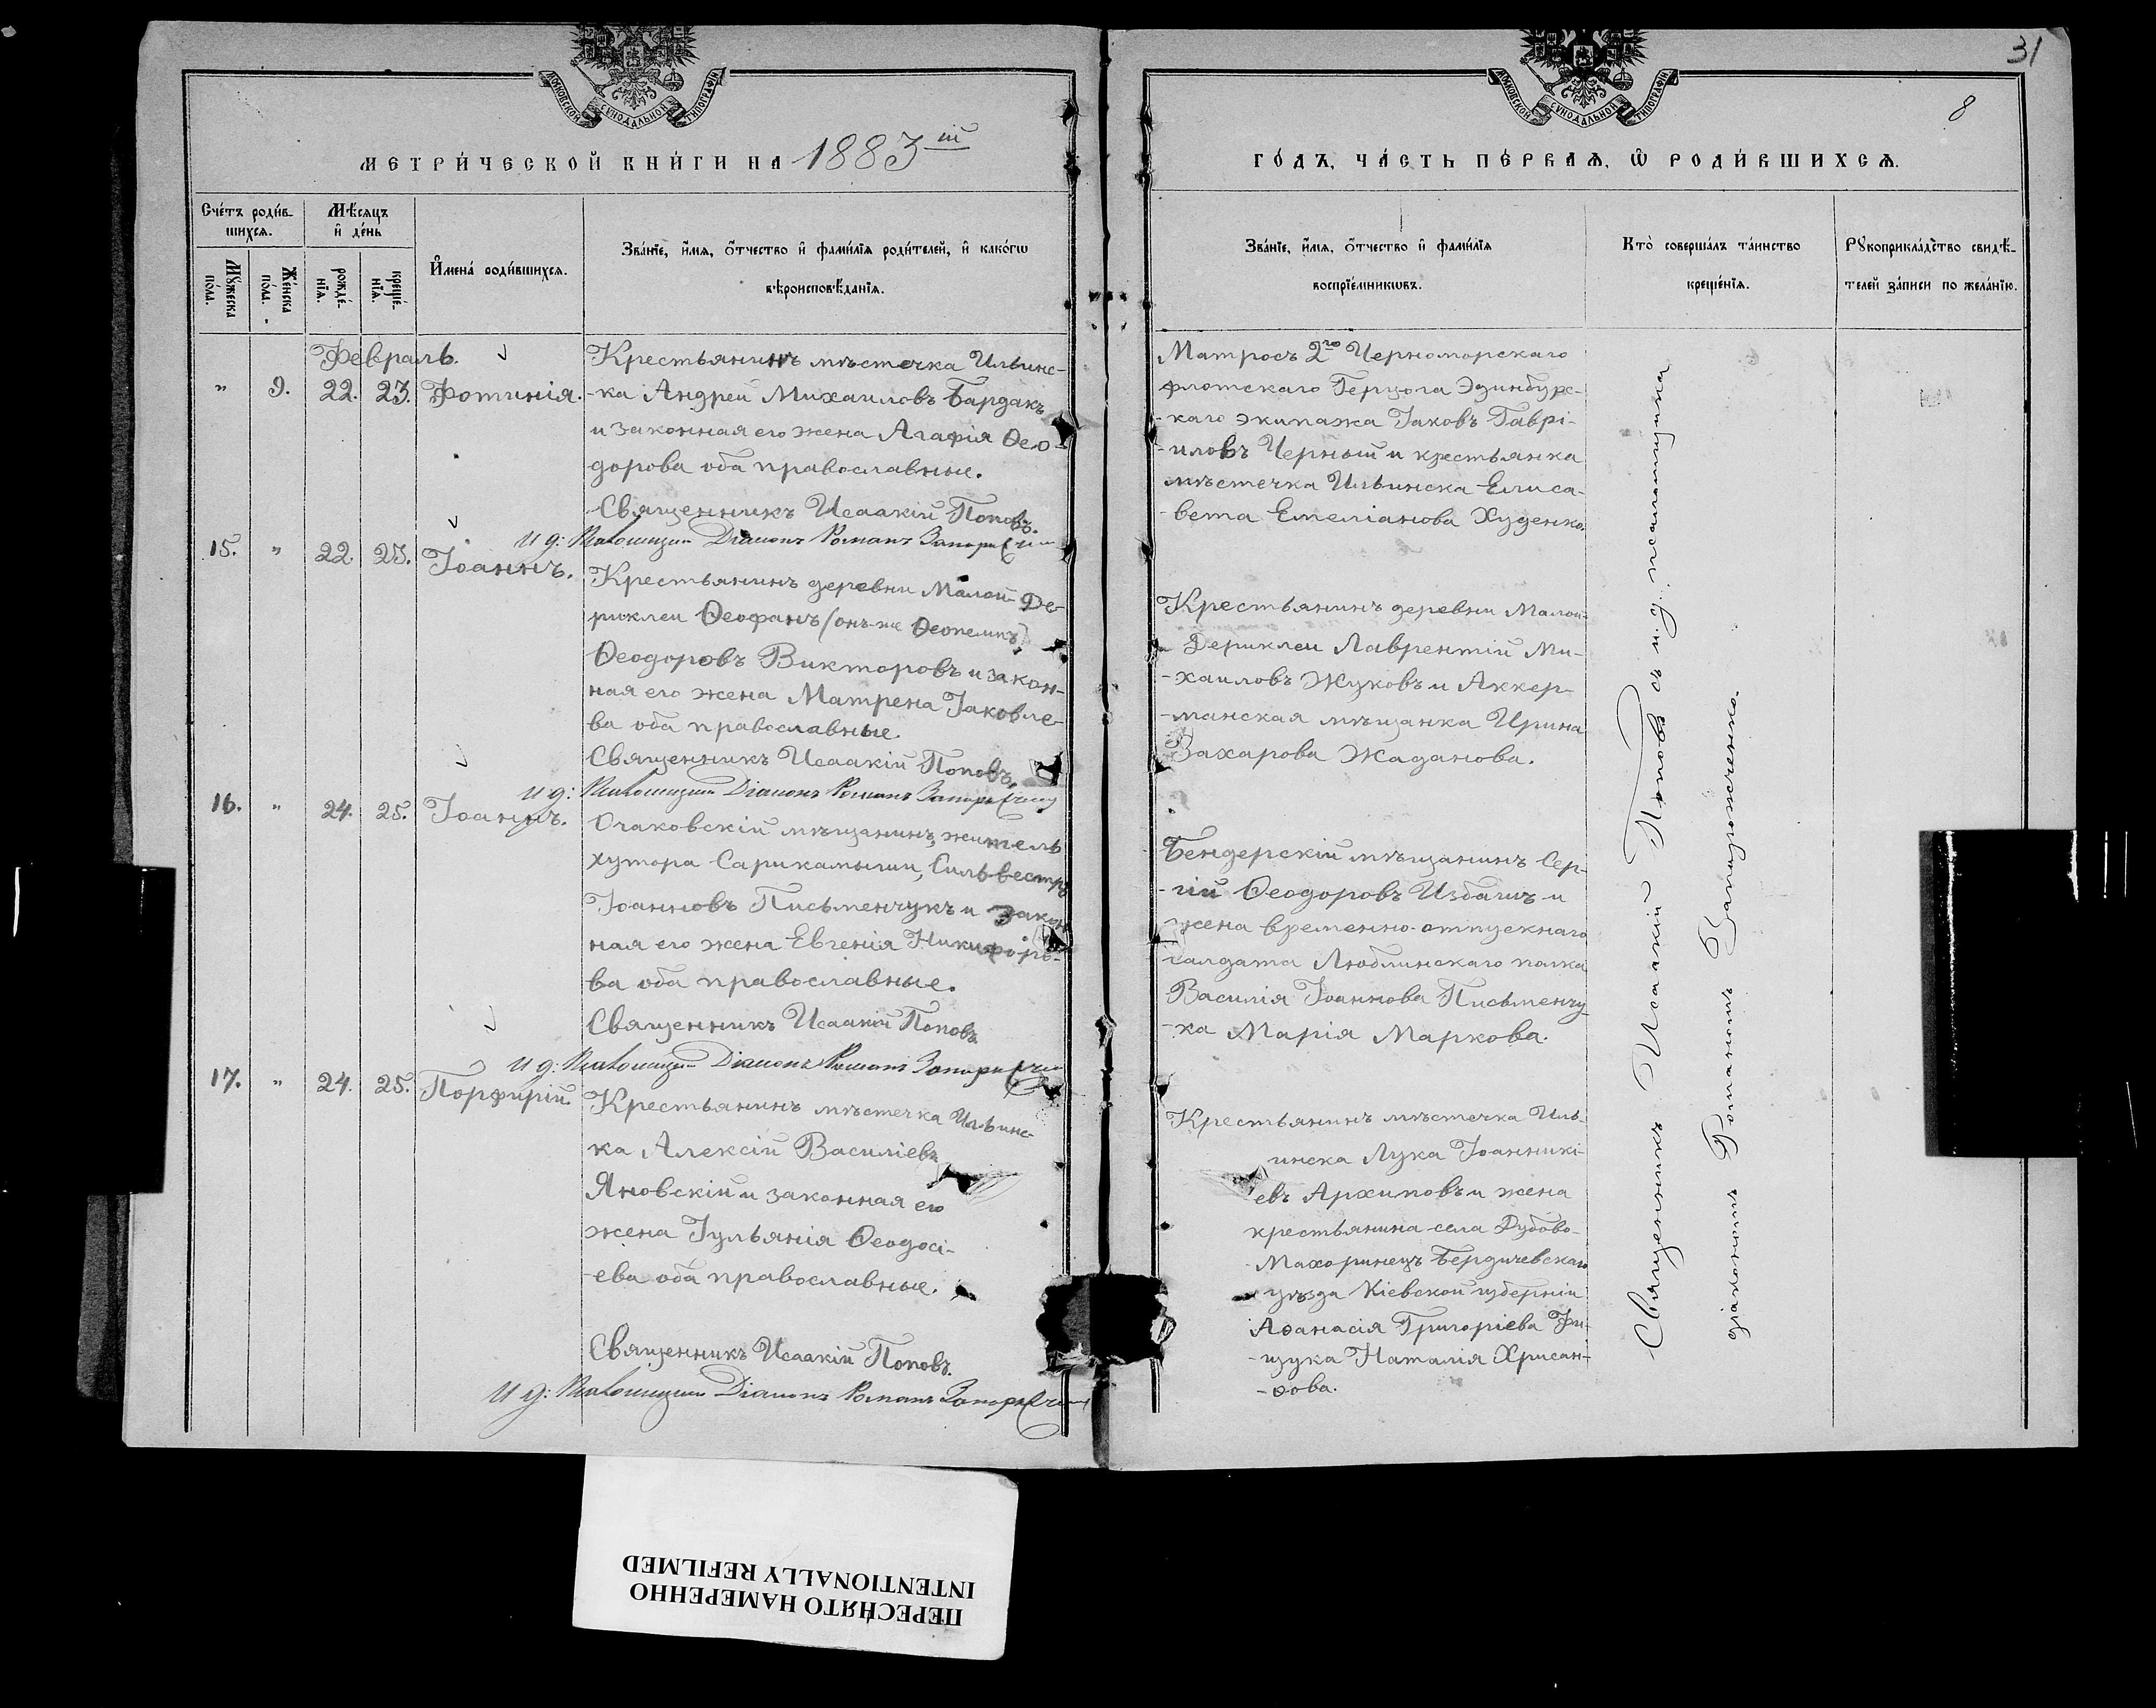 31
8
МОСКОВСКОЙ СѴНОДАЛЬНОЙ ТИПОГРАФІИ
МОСКОВСКОЙ СѴНОДАЛЬНОЙ ТИПОГРАФІИ
МЕТРИ́ЧЕСКОЙ КНИ́ГИ НА 1883 ій
ГО́ДЪ, ЧА́СТЬ ПЕ́РВАЯ, Ѿ РОДИ́ВШИХСЯ.
Сче́тъ роди́в-
шихся.
Мѣ́сяцъ
и де́нь
Мꙋ́жеска
по́ла.
Же́нска
по́ла.
рожде́-
нїя.
креще́-
нїя.
Имена̀ роди́вшихся.
Зва́нїе, и́мя, о́тчество и фами́лїя роди́телей, и како́гѡ
вѣроисповѣ́данїя.
Зва́нїе, и́мя, о́тчество и фами́лїя
воспрїе́мникѡвъ.
Кто̀ соверша́лъ та́инство
креще́нїя.
Рꙋкоприкла́дство свидѣ́-
телей за́писи по жела́нїю.
Февраль.
" 9. 22. 23. Фотинія.
Крестьянинъ мѣстечка Ильинс-
-ка Андрей Михаиловъ Бардакъ
и законная его жена Агафія Ѳео-
дорова оба православные.
Священникъ Исаакій Поповъ.
И д: Псаломщика Діаконъ Романъ
Матросъ 2го Черноморскаго
флотскаго Герцога Эдинбург-
-каго экипажа Іаковъ Гаврі-
-иловъ Черный и крестьянка
мѣстечка Ильинска Елиса-
-вета Емеліанова Худенко.
15. " 22 23. Іоаннъ.
Крестьянинъ деревни Малой Де-
риклеи Ѳеофанъ (онъ-же Ѳеопемпъ)
Ѳеодоровъ Викторовъ и закон-
ная его жена Матрена Іаковле-
ва оба православные.
Священникъ Исаакій Поповъ.
И д: Псаломщика Діаконъ Романъ
Крестьянинъ деревни Малой-
Дериклеи Лаврентій Ми-
-хаиловъ Жуковъ и Аккер-
-манская мѣщанка Ирина
Захарова Жаданова.
16. " 24. 25. Іоаннъ.
Очаковскій мѣщанинъ, житель
хутора Сарикамыши, Сильвестръ
Іоанновъ Письменчукъ и закон
ная его жена Евгенія Никифоро-
ва оба православные.
Священникъ Исаакій Поповъ
И д: Псаломщика Діаконъ Романъ
Бендерскій мѣщанинъ Сер-
-гій Ѳеодоровъ Избашъ и
жена временно-отпускнаго
солдата Люблинскаго полка
Василія Іоаннова Письменчу-
-ка Марія Маркова.
17. " 24. 25. Порфирій.
Крестьянинъ мѣстечка Ильинс-
ка Алексій Василіевъ
Яновскій и законная его
жена Іульянія Ѳеодосі-
-ева оба православные.
Священникъ Исаакій Поповъ.
И д: Псаломщика Діаконъ Романъ
Крестьянинъ мѣстечка Иль-
инска Лука Іоанникі-
евъ Архиповъ и жена
крестьянина села Дубово-
-Махоринецъ Бердичевскаго
уѣзда Кіевской губерніи
Аѳанасія Григоріева Фи-
-щука Наталія Хрисан-
-ѳова.
Священникъ Исаакій Поповъ съ и. д. псаломщика
діакономъ Романомъ Запорожченко.
ПЕРЕСНЯТО НАМЕРЕННО
INTENTIONALLY REFILMED